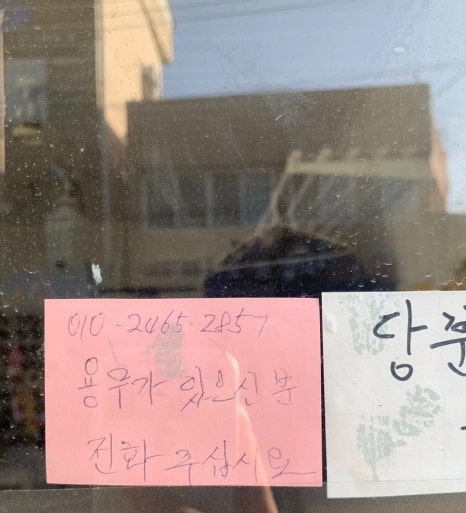 010-2465-2857
용무가 있으신 분
전화 주십시요
당